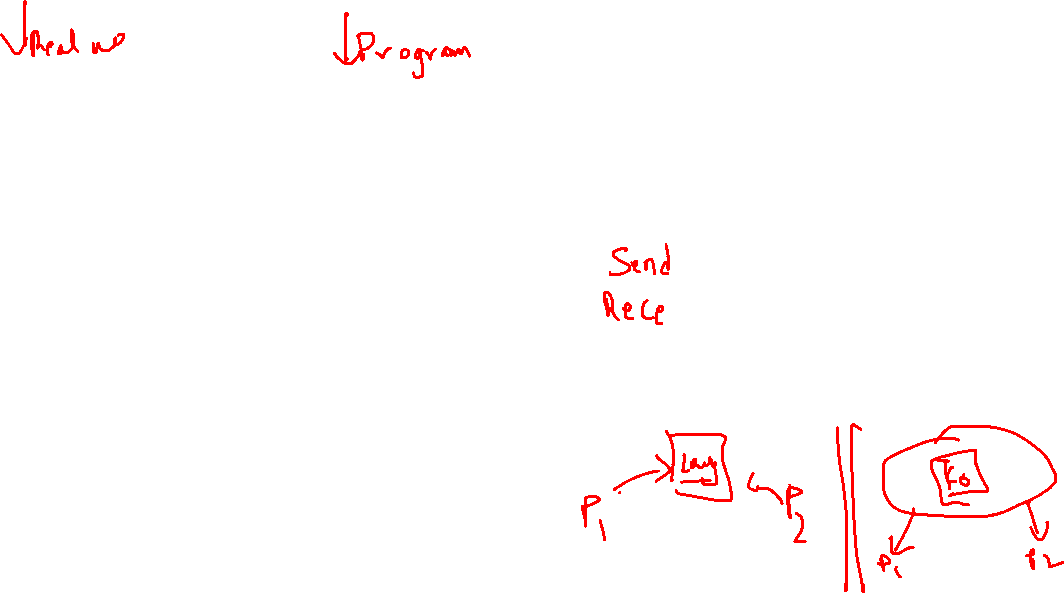 Real wo
Program
Send
Rece
P1
P2
P1
P2